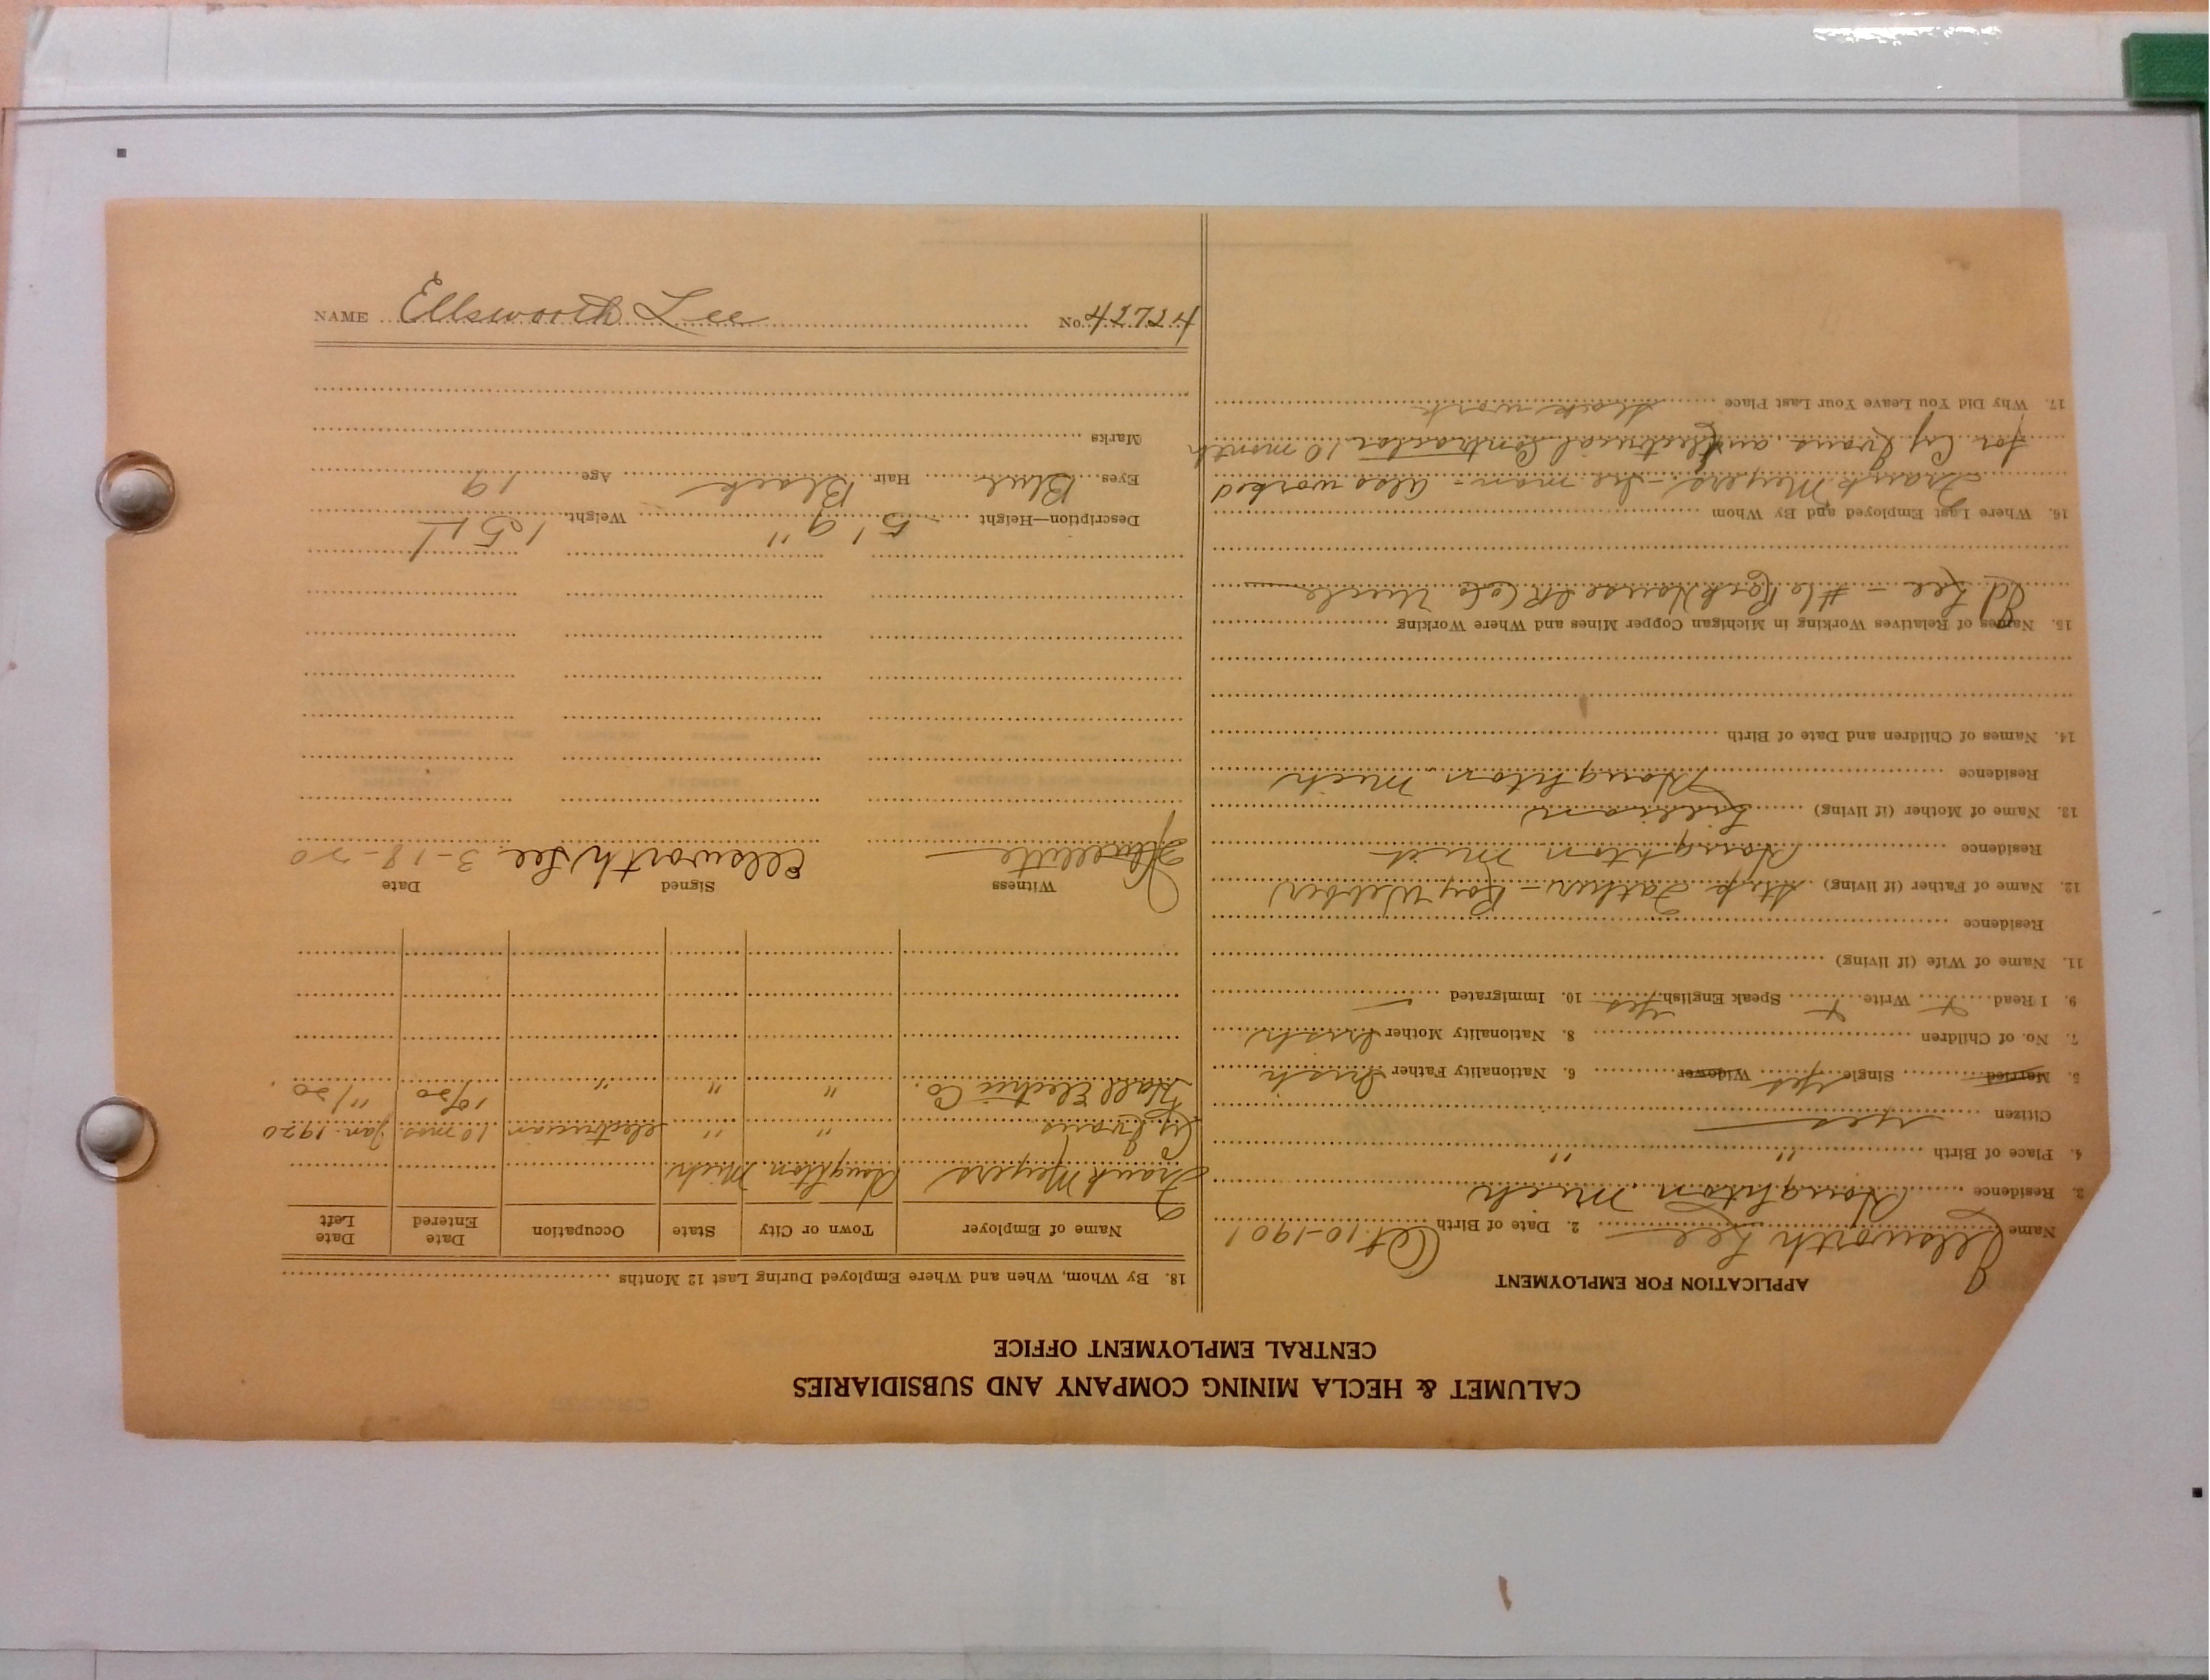 NAME Ellsworth Lee No. 42724
CALUMET & HECLA MINING COMPANY AND SUBSIDIARIES
CENTRAL EMPLOYMENT OFFICE
APPLICATION FOR EMPLOYMENT
Name Ellsworth Lee 2. Date of Birth Oct 10-1901
3. Residence Houghton Mich
4. Place of Birth " "
Citizen yes
5. Married Single yes Widower 6. Nationality Father Irish
7. No. of Children 8. Nationality Mother Irish
9. I Read x Write x Speak English yes 10. Immigrated –
11. Name of Wife (if living)
Residence
12. Name of Father (if living) Step Father - Roy Webber
Residence Houghton Mich
13. Name of Mother (if living) Lillian
Residence Houghton Mich
14. Names of Children and Date of Birth
15. Names of Relatives Working in Michigan Copper Mines and Where Working
Ed Lee - #6 Rock House Uncle
16. Where Last Employed and By Whom
Frank Meyers - Ice man - also worked
for Cy Evans an Electrical Contractor 10 month
17. Why Did You Leave Your Last Place slack work
18. By Whom, When and Where Employed During Last 12 Months
Name of Employer Town or City State Occupation Date Entered Date Left
Frank Meyers Houghton Mich
Cy Evans " " electrician 10 mos Jan. 1920
Hall Electric Co. " " " 10/20 11/20
Witness Signed Date
Ellsworth Lee 3-18-20
Description—Height 5' 9" Weight 151
Eyes Blue Hair Black Age 19
Marks